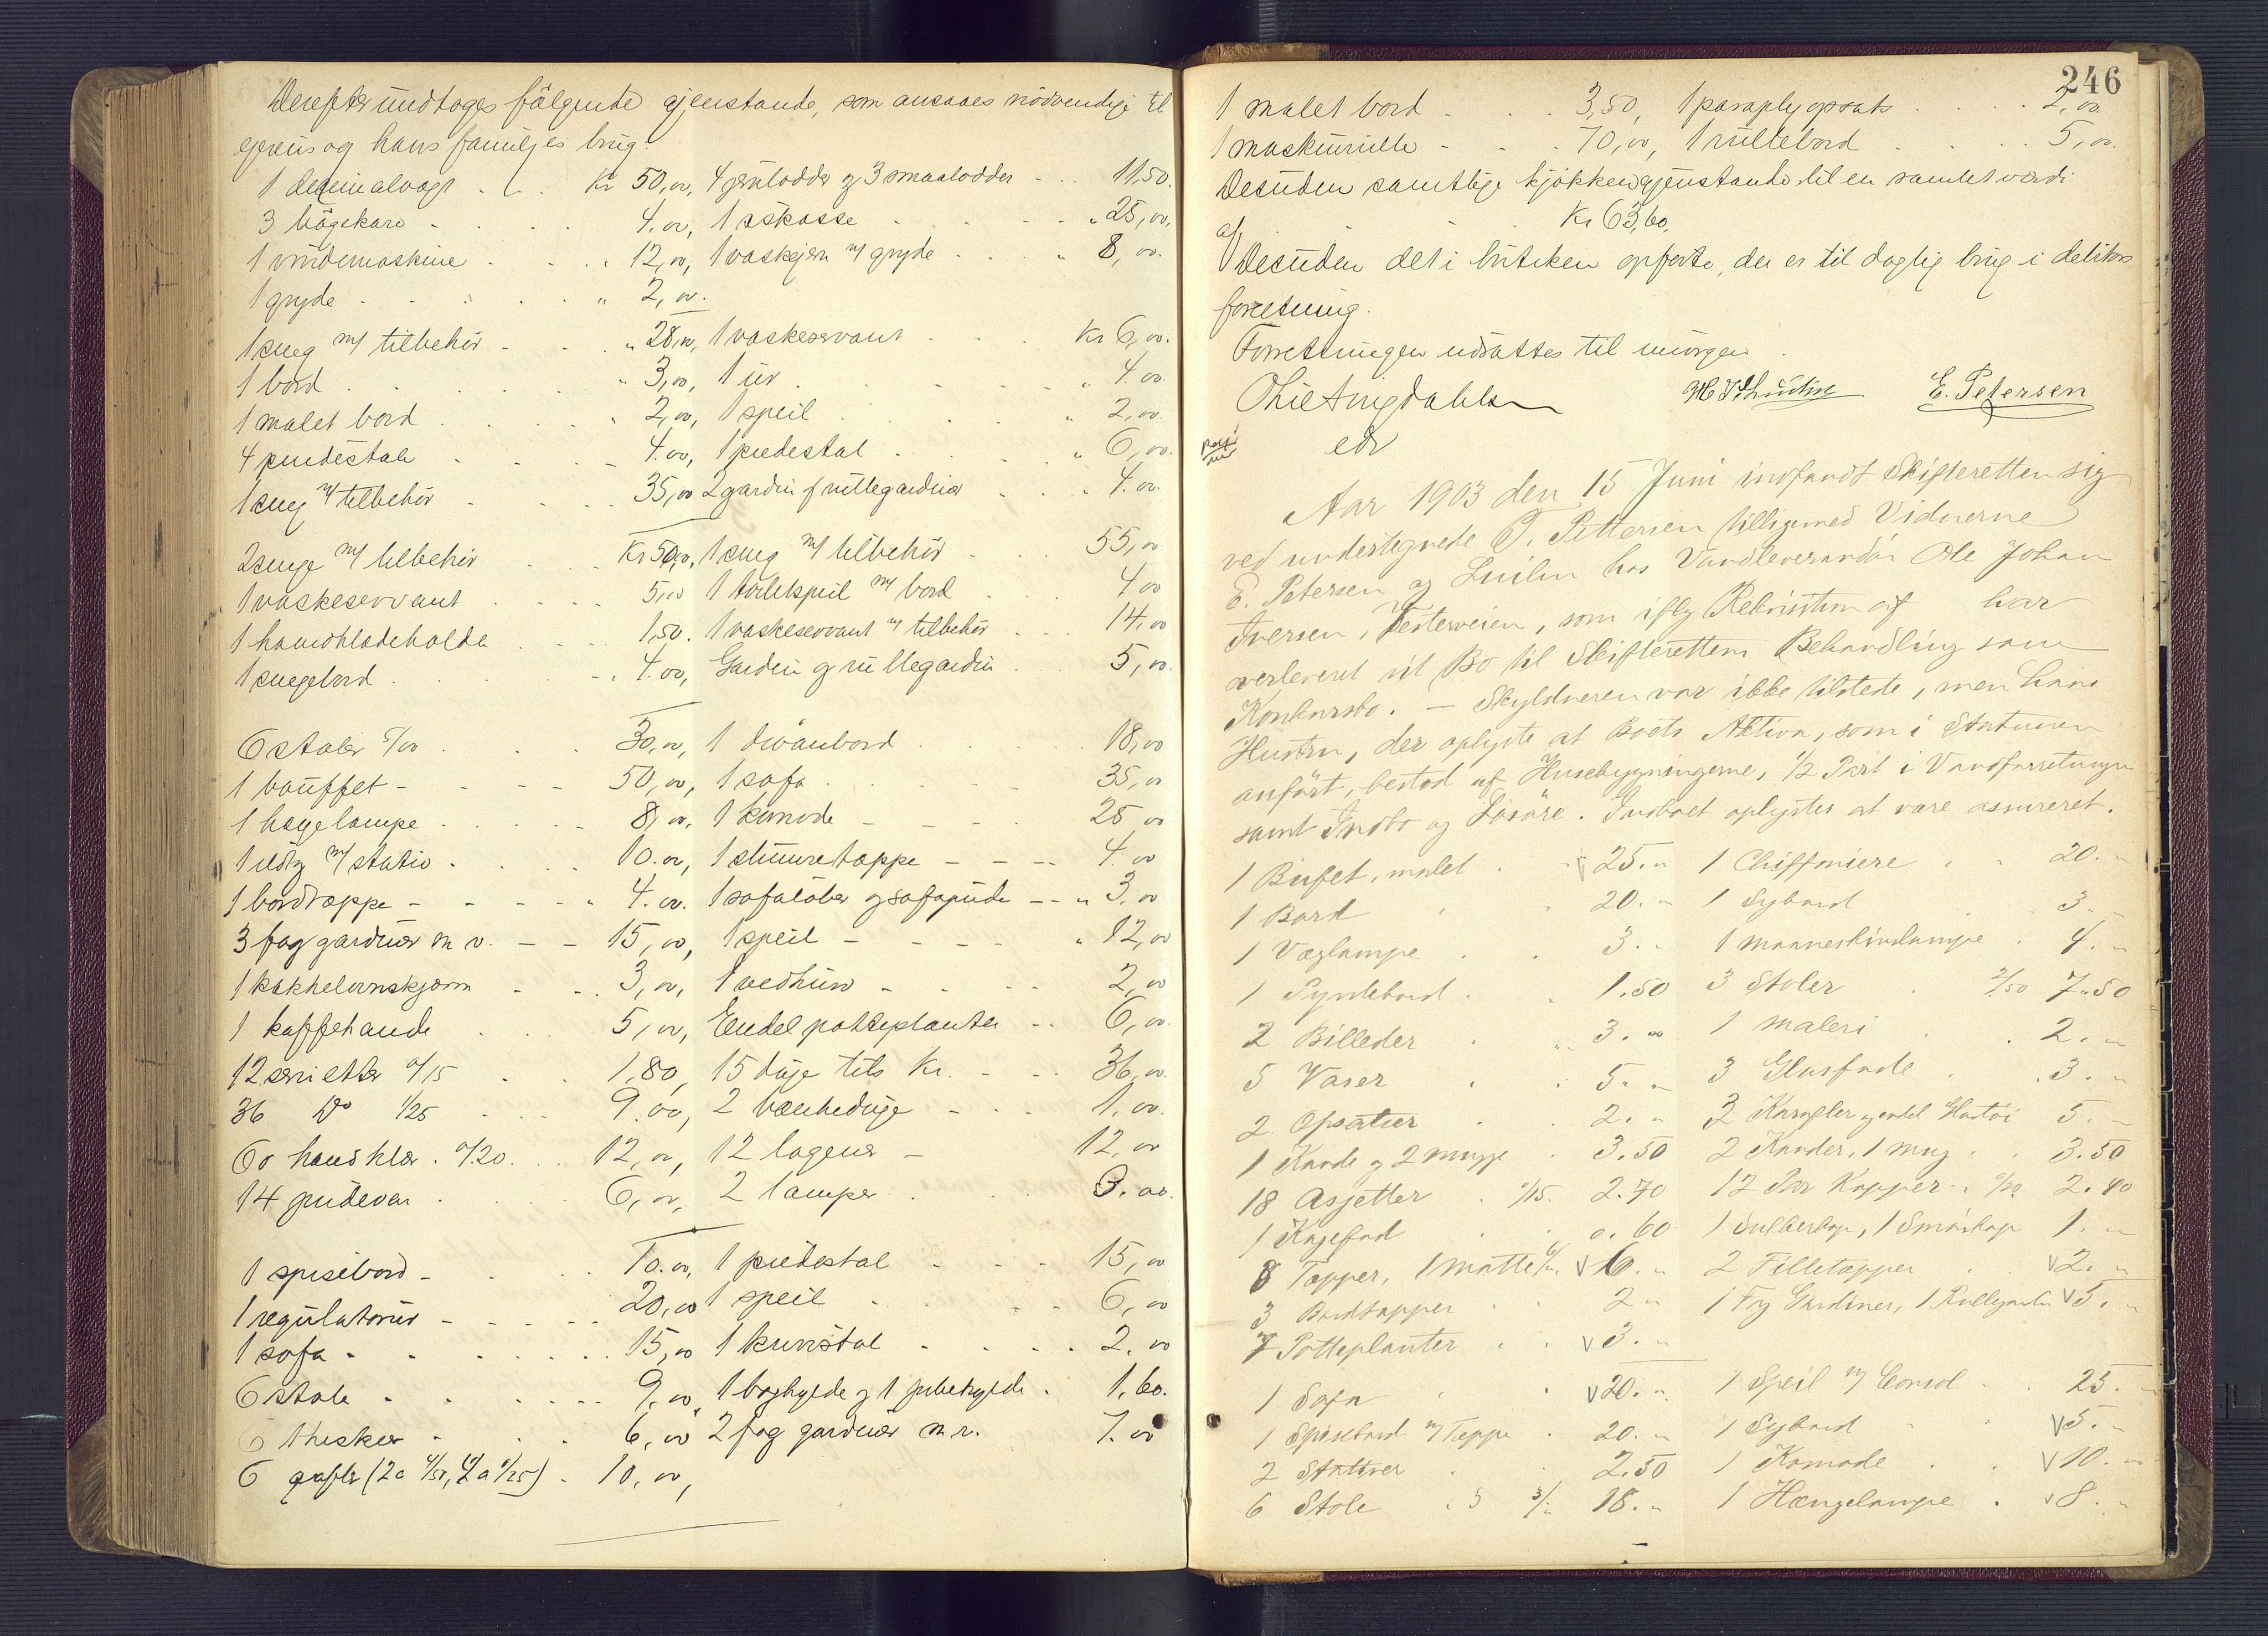 Derefter undtoges følgende gjenstande, som ansaaes nødvendige til
eierens og hans familjes brug:
1 decimalvægt . . . Kr 50,00, 4 jernlodder og 3 smaalodder . . . 11,50.
3 bögekar . . . 4.00, 1 iskasse . . . " 25,00,
1 vridemaskine . . . " 12,00, 1 vaskejern m/ gryde . . . " 8,00.
1 gryde . . . " 2,00.
1 seng m/ tilbehör . . . " 28,00, 1 vaskeservant . . . Kr 6,00.
1 bord . . . " 3,00, 1 ur . . . " 4.00.
1 malet bord . . . " 2,00, 1 speil . . . " 2,00.
4 piedestale . . . 4.00, 1 piedestal . . . " 6,00.
1 seng m/ tilbehör . . . 35,00 2 gardin & rullegardiner . . . 4.00.
2 senge m/ tilbehör . . . Kr 50,00, 1 seng m/ tilbehör . . . 55,00
1 vaskeservant . . . 5,00 1 toiletspeil m/ bord . . . 4 00
1 haandklædeholder . . . 1,50. 1 vaskeservant m/ tilbehör . . . 14,00
1 sengebord . . . " 4.00, Gardin og rullegardin . . . 5,00
6 stoler 5/00 . . . 30,00, 1 divanbord . . . 18,00
1 bauffet - - - 50,00, 1 sofa . . . 35,00
1 hagelampe . . . 8,00, 1 komode - - - 25 00
1 m/ stativ . . . 10.00, 1 stueteppe - - - 4.00
1 bordtæppe - - - " 4.00. 1 sofalöber og sofapude - - " 3.00
3 fag gardiner m v. - - 15,00, 1 speil - - - " 12,00
1 kakkelovnskjærm - . 3,00, 1 vedhus - . - 2,00
1 kaffekande . . . 5,00, Endel potteplanter . . 6,00.
12 servietter a/15 . . 1,80, 15 duge tils Kr. - - - 36,00.
36 Do 1/25 . . . 9.00, 2 bænkeduge - - - 1.00.
60 haandklær . a/20. . . 12,00, 12 lagener - 12,00
14 pudevar . . . 6,00, 2 lamper . . . 3.00.
1 spisebord - . . . 10.00, 1 piedestal - - - 15,00
1 regulatorur - - - - 20,00 1 speil . . . 6,00
1 sofa - . . . 15,00 1 kurvstol . . . 2.00
6 stole . . . 9.00, 1 boghylde og 1 pibehylde . 1,60.
6 theskeer . . . 6,00 2 fag gardiner m. v. 7.00
6 gafler (2 a 4/50, 4 a 1/25) . 10.00,
246
1 malet bord . . . 3,50, 1 paraplyopsats . . . 2,00.
1 maskinrulle - - . 70,00, 1 rullebord . . . 5,00.
Desuden samtlige kjøkkengjenstande til en samlet værdi
af . . . Kr 63,60.
Desuden det i butiken opførte, der er til daglig brug i debitors
forretning.
Forretningen udsattes til imorgen.
E. Petersen
edv
Aar 1903 den 15 Juni indfandt Skifteretten sig
ved undertegnede P. Pettersen tilligemed Vidnerne
E. Petersen og hos Vandleverandör Ole Johan
Iversen, Vesterveien, som iflg Rekvisition af har
overleveret sit Bo til Skifterettens Behandling som
Konkursbo. - Skyldneren var ikke tilstede, men hans
Hustru, der oplyste at Boets Aktiva, som i Statusen
anført, bestod af Husebygningerne, 1/2 Part i Vandforretningen
samt Indbo og Lösöre. Indboet oplystes at være assureret.
1 Bufet, malet . v 25. " 1 Chiffoniere . . 20. "
1 Bord . . 20. " 1 Sybord 3. -
1 Væglampe . . 3. " 1 Maaneskinslampe . 4. "
1 Pyntebord . . 1.50 3 Stoler . 2/50 7.50
2 Billeder . . 3. " 1 Maleri . . 2. "
5 Vaser . . 5. " 3 Glasfade . . 3. "
2 Opsatser . . 2. " 2 Karafler og endel Glastöi 5. -
1 Kande og 2 Mugge . 3.50 2 Kander, 1 Mug . . 3.50
18 Asjetter . a/15. 2.70 12 Par Kopper . a/20 2.40
1 Kagefad . . 0.60 1 Sukkerkop, 1 Smörkop 1. "
8 Tæpper, 1 Matte v 6. " 2 Filletæpper v 2. "
3 Bordtæpper . . 2 " 1 Fag Gardiner, 1 Rullegardin v 5. "
7 Potteplanter . . v 3. "
1 Sofa . . v 20. " 1 Speil m/ Consol . . 25. "
1 Spisebord m/ Teppe . 20. " 1 Sybord . . v 5. "
2 . . 2.50 1 Komode . . v 10. "
6 Stole . 3/" 18. " 1 Hængelampe . v 8. "